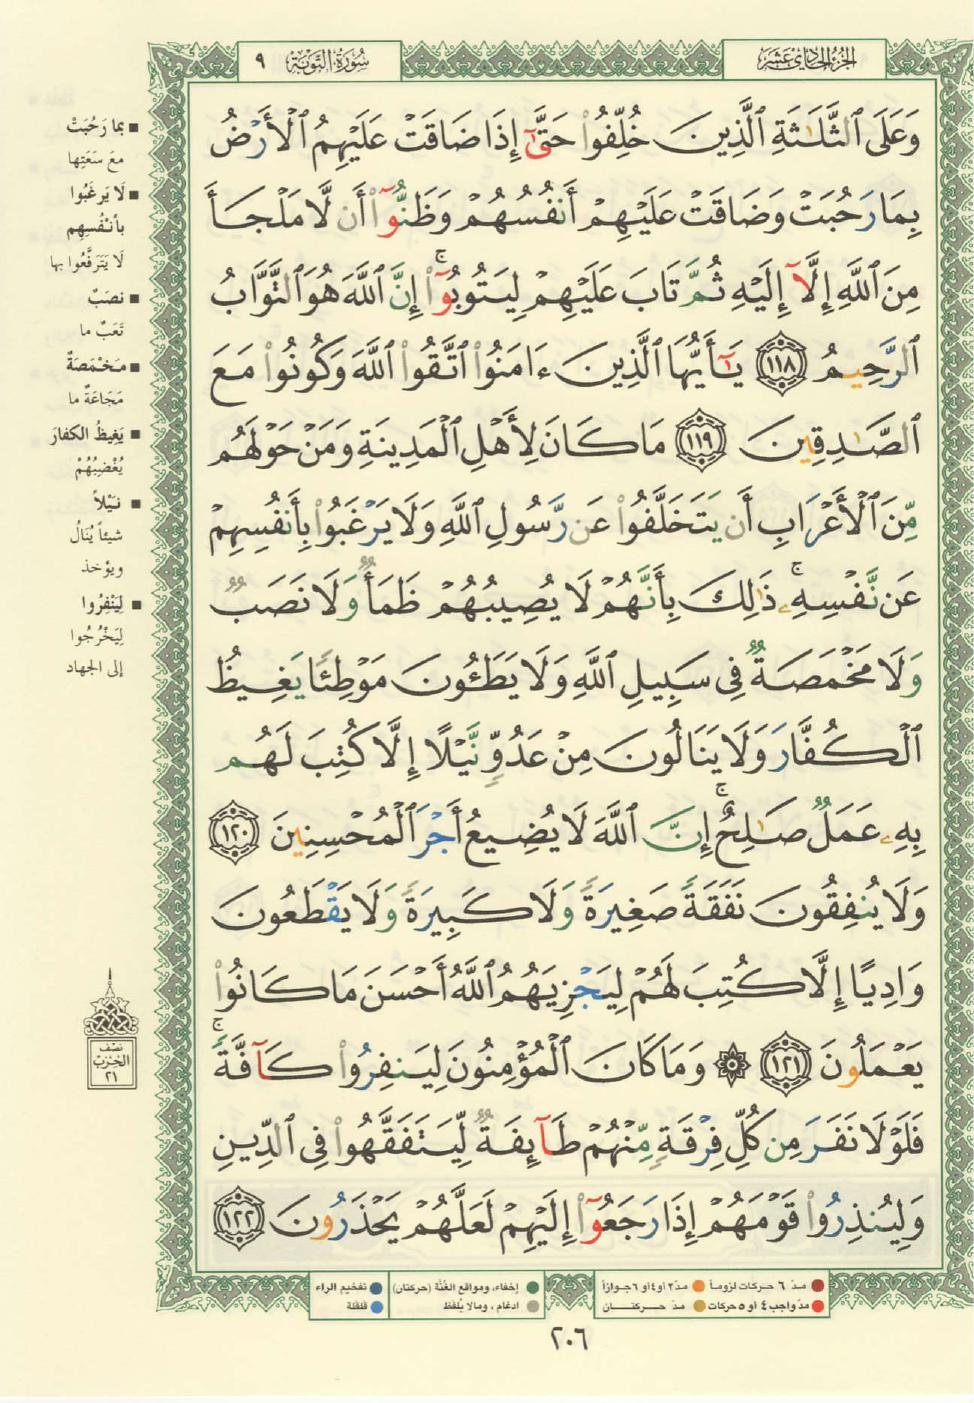 الجزء الحادي عشر
سورة التوبة ٩
وَعَلَى ٱلثَّلَٰثَةِ ٱلَّذِينَ خُلِّفُوا۟ حَتَّىٰٓ إِذَا ضَاقَتْ عَلَيْهِمُ ٱلْأَرْضُ
بِمَا رَحُبَتْ وَضَاقَتْ عَلَيْهِمْ أَنفُسُهُمْ وَظَنُّوٓا۟ أَن لَّا مَلْجَأَ
مِنَ ٱللَّهِ إِلَّآ إِلَيْهِ ثُمَّ تَابَ عَلَيْهِمْ لِيَتُوبُوٓا۟ ۚ إِنَّ ٱللَّهَ هُوَ ٱلتَّوَّابُ
ٱلرَّحِيمُ ١١٨ يَٰٓأَيُّهَا ٱلَّذِينَ ءَامَنُوا۟ ٱتَّقُوا۟ ٱللَّهَ وَكُونُوا۟ مَعَ
ٱلصَّٰدِقِينَ ١١٩ مَا كَانَ لِأَهْلِ ٱلْمَدِينَةِ وَمَنْ حَوْلَهُم
مِّنَ ٱلْأَعْرَابِ أَن يَتَخَلَّفُوا۟ عَن رَّسُولِ ٱللَّهِ وَلَا يَرْغَبُوا۟ بِأَنفُسِهِمْ
عَن نَّفْسِهِۦ ۚ ذَٰلِكَ بِأَنَّهُمْ لَا يُصِيبُهُمْ ظَمَأٌ وَلَا نَصَبٌ
وَلَا مَخْمَصَةٌ فِى سَبِيلِ ٱللَّهِ وَلَا يَطَـُٔونَ مَوْطِئًا يَغِيظُ
ٱلْكُفَّارَ وَلَا يَنَالُونَ مِنْ عَدُوٍّ نَّيْلًا إِلَّا كُتِبَ لَهُم
بِهِۦ عَمَلٌ صَٰلِحٌ ۚ إِنَّ ٱللَّهَ لَا يُضِيعُ أَجْرَ ٱلْمُحْسِنِينَ ١٢٠
وَلَا يُنفِقُونَ نَفَقَةً صَغِيرَةً وَلَا كَبِيرَةً وَلَا يَقْطَعُونَ
وَادِيًا إِلَّا كُتِبَ لَهُمْ لِيَجْزِيَهُمُ ٱللَّهُ أَحْسَنَ مَا كَانُوا۟
يَعْمَلُونَ ١٢١ ۞ وَمَا كَانَ ٱلْمُؤْمِنُونَ لِيَنفِرُوا۟ كَآفَّةً ۚ
فَلَوْلَا نَفَرَ مِن كُلِّ فِرْقَةٍ مِّنْهُمْ طَآئِفَةٌ لِّيَتَفَقَّهُوا۟ فِى ٱلدِّينِ
وَلِيُنذِرُوا۟ قَوْمَهُمْ إِذَا رَجَعُوٓا۟ إِلَيْهِمْ لَعَلَّهُمْ يَحْذَرُونَ ١٢٢
■ بما رَحُبَتْ
معَ سَعَتِها
■ لَا يَرغَبُوا
بأنْفُسِهِم
لَا يَتَرَفَّعُوا بها
■ نصَبٌ
تَعَبٌ ما
■ مَخْمَصَةٌ
مَجَاعَةٌ ما
■ يَغِيظُ الكفارَ
يُغْضِبُهُمْ
■ نَيْلاً
شيئاً يُنَالُ
ويؤخذ
■ لِيَنْفِرُوا
لِيَخْرُجُوا
إلى الجهاد
نصف
الحزب
٢١
مدّ ٦ حركات لزوماً مدّ ٢ أو ٤ أو ٦ جوازاً إخفاء، ومواقع الغُنَّة (حركتان) تفخيم الراء
مدّ واجب ٤ أو ٥ حركات مدّ حركتان ادغام، ومالا يُلفَظ قلقلة
٢٠٦